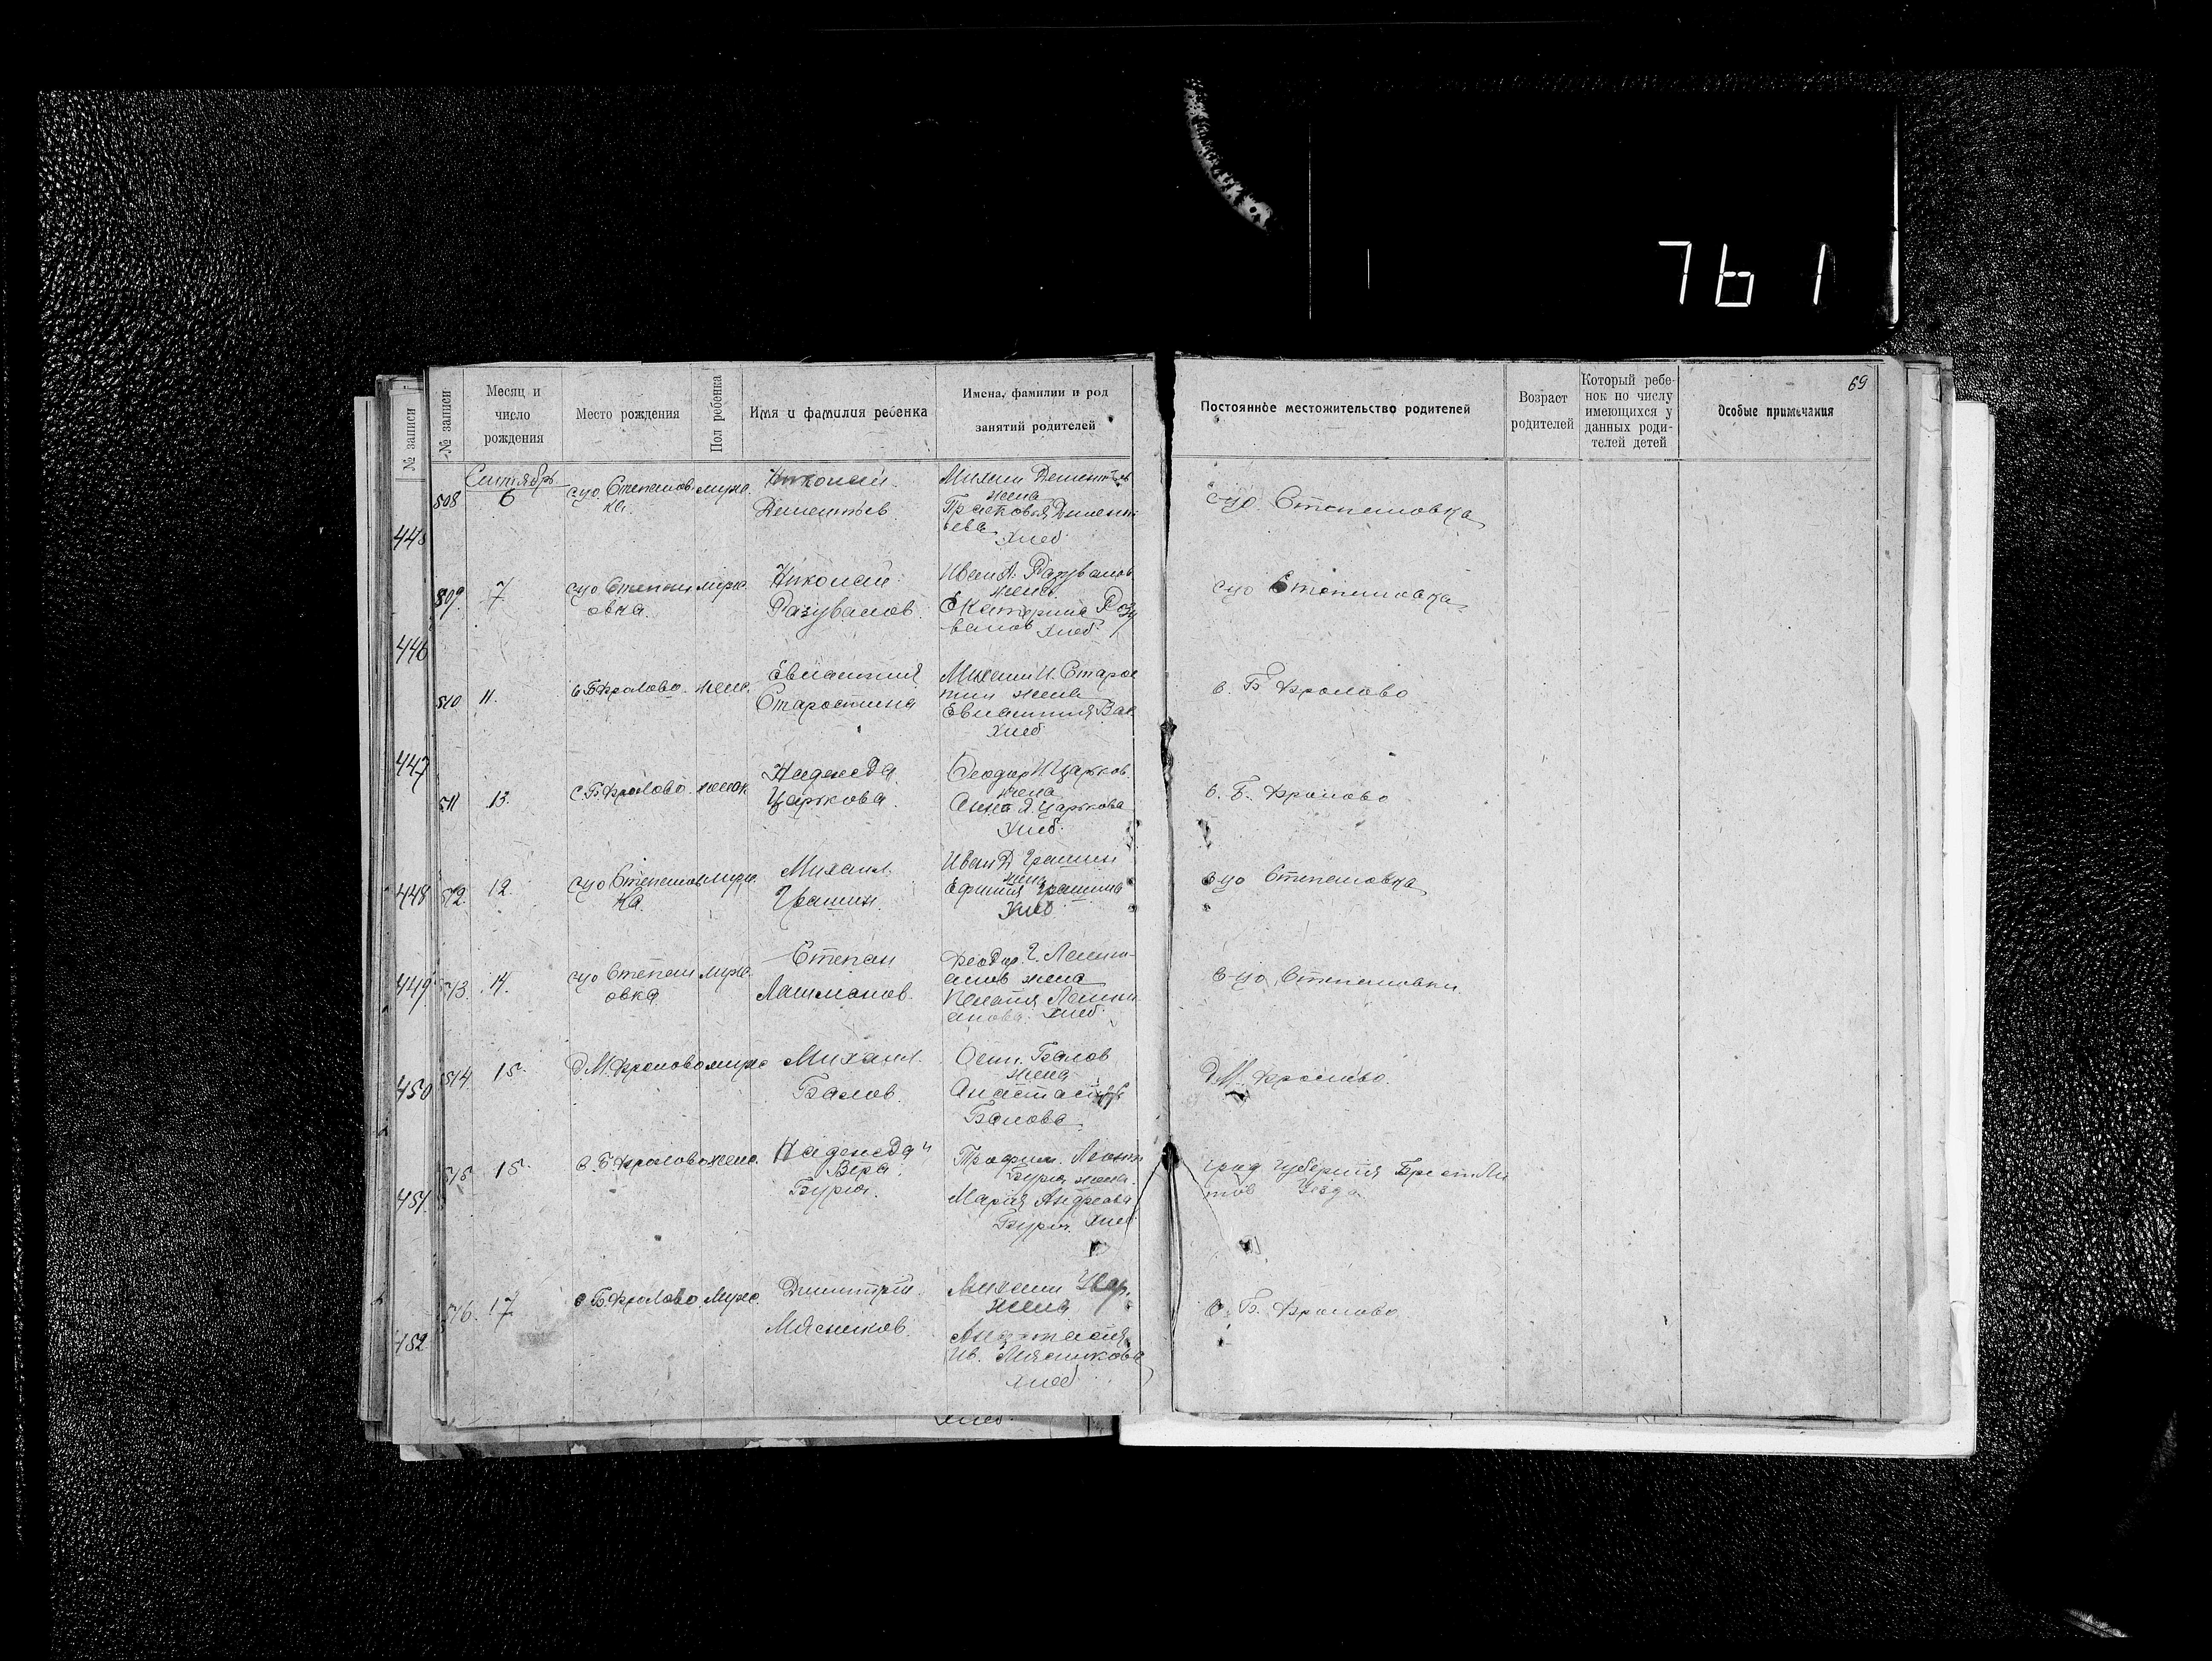 761
69
№ записи
№ записи
Месяц и число рождения
Место рождения
Пол ребенка
Имя и фамилия ребенка
Имена, фамилии и род занятий родителей
Постоянное местожительство родителей
Возраст родителей
Который ребенок по числу имеющихся у данных родителей детей
Особые примечания
Сентябрь
508 6 Степанов муж. Николай
ка. Дементьев
жена
Хлеб
Степановка
446
509 7 Степан муж. Николай
овка. Разуванов
Иван Разуванов
жена
Екатерина Разу
ванов Хлеб
Степановка
510 11. с Б Фролово. жен.
Старостина
Михаил И. Старос
тин жена
Хлеб
с. Б Фролово
447
511 13. с Б Фролово. женск. Надежда
Царькова
Феодор И Царьков
жена
Анна Царькова
Хлеб
с. Б. Фролово
448
512. 12. Степанов муж. Михаил
ка. Грашин
Иван Д Грашин
жена
Грашина
Хлеб
Степановка
449
513. 14. Степан муж. Степан
овка Лашманов.
Феодор. Г. Лашм-
анов жена
Пелагия Лашм
анова. Хлеб.
Степановки
450
514 15. Д. М. Фролово муж Михаил
Балов.
Осип. Балов
жена
Балова
Д М. Фролово.
451
515 15. с. Б. Фролово жен. Надежда и
Вера.
Жена
Мария Андреева
Хлеб
град губерния Брест Ли
тов Уезда
516. 17 с Б. Фролово муж. Димитрий
Мясников.
Михаил
жена
Анастасия
Ив. Мясникова
Хлеб
с. Б. Фролово
452
Хлеб.